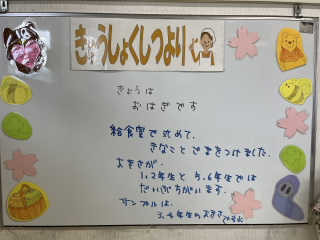 きゅうしょくしつより
きょうは
おはぎです
給食室で丸めて、
きなことごまをつけました。
大きさが、
1.2年生と5.6年生では
だいぶちがいます。
サンプルは、
3.4年生の大きさですよ